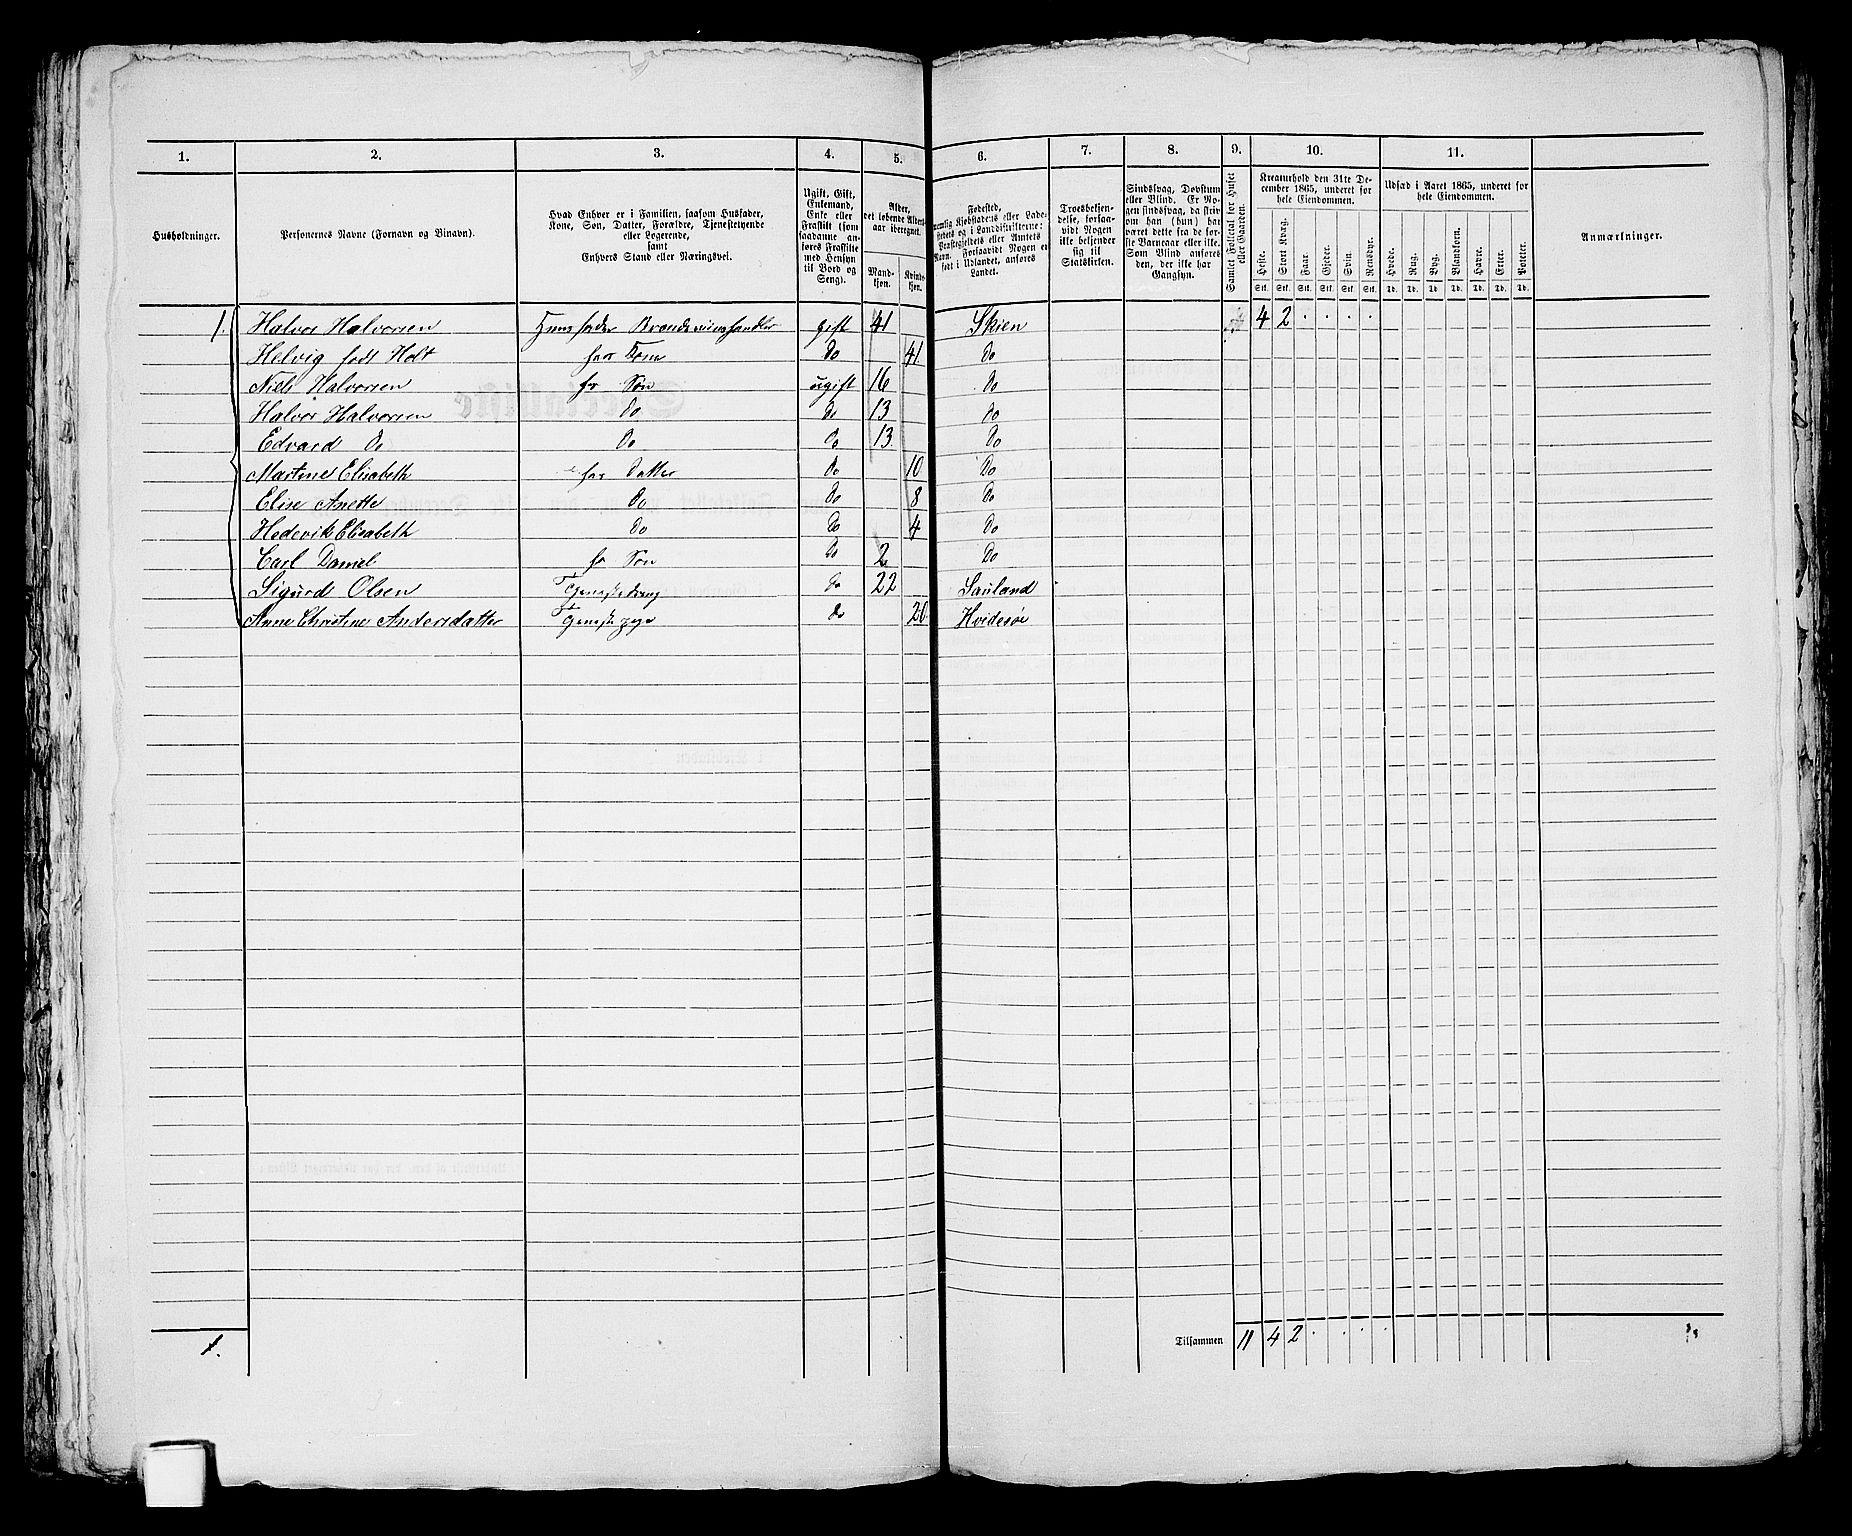 1. 2. 3. 4. 5. 6. 7. 8. 9. 10. 11.
Husholdninger.
Personernes Navne (Fornavn og Binavn).
Hvad Enhver er i Familien, saasom Husfader,
Kone, Søn, Datter, Forældre, Tjenestetyende
eller Logerende,
samt
Enhvers Stand eller Næringsvei.
Ugift, Gift,
Enkemand,
Enke eller
Fraskilt (som
saadanne an-
føres Fraskilte
med Hensyn
til Bord og
Seng).
Alder,
det løbende Alders-
aar iberegnet.
Mand-
kjøn.
Kvind-
kjøn.
Fødested,
nemlig Kjøbstadens eller Lade-
stedets og i Landdistrikterne:
Præstegjeldets eller Amtets
Navn. Forsaavidt Nogen er
født i Udlandet, anføres
Landet.
Troesbekjen-
delse, forsaa-
vidt Nogen
ikke bekjender
sig til
Statskirken.
Sindssvag, Døvstum
eller Blind. Er No-
gen sindssvag, da skriv
om han (hun) har
været dette fra de før-
ste Barneaar eller ikke.
Som Blind anføres
den, der ikke har
Gangsyn.
Samlet Folketal for Huset
eller Gaarden.
Kreaturhold den 31te De-
cember 1865, underet for
hele Eiendommen.
Heste. Stort Kvæg. Faar. Gjeder. Svin. Rensdyr.
Stk. Stk. Stk. Stk. Stk. Stk.
Udsæd i Aaret 1865, underet for
hele Eiendommen.
Hvede. Rug. Byg. Blandkorn. Havre. Erter. Poteter.
Td. Td. Td. Td. Td. Td. Td.
Anmærkninger.
1. Halvor Halvorsen Huusfader Brændeviinshandler gift 41 Skien 4 2 . . . .
Helvig født Holt hans Kone do 41. do
Niels Halvorsen hs Søn ugift 16 do
Halvor Halvorsen do do 13 do
Edvard do do do 13 do
Martine Elisabeth hans Datter do 10 do
Elise Anette do do 8 do
Hedevik Elisabeth do do 4 do
Carl Daniel hs Søn do 2 do
Sigurd Olsen Tjenestedreng do 22 Sauland
Anne Christine Andersdatter Tjenestepige do 20. Hvidesøe
1. Tilsammen 11 4 2 . . . .